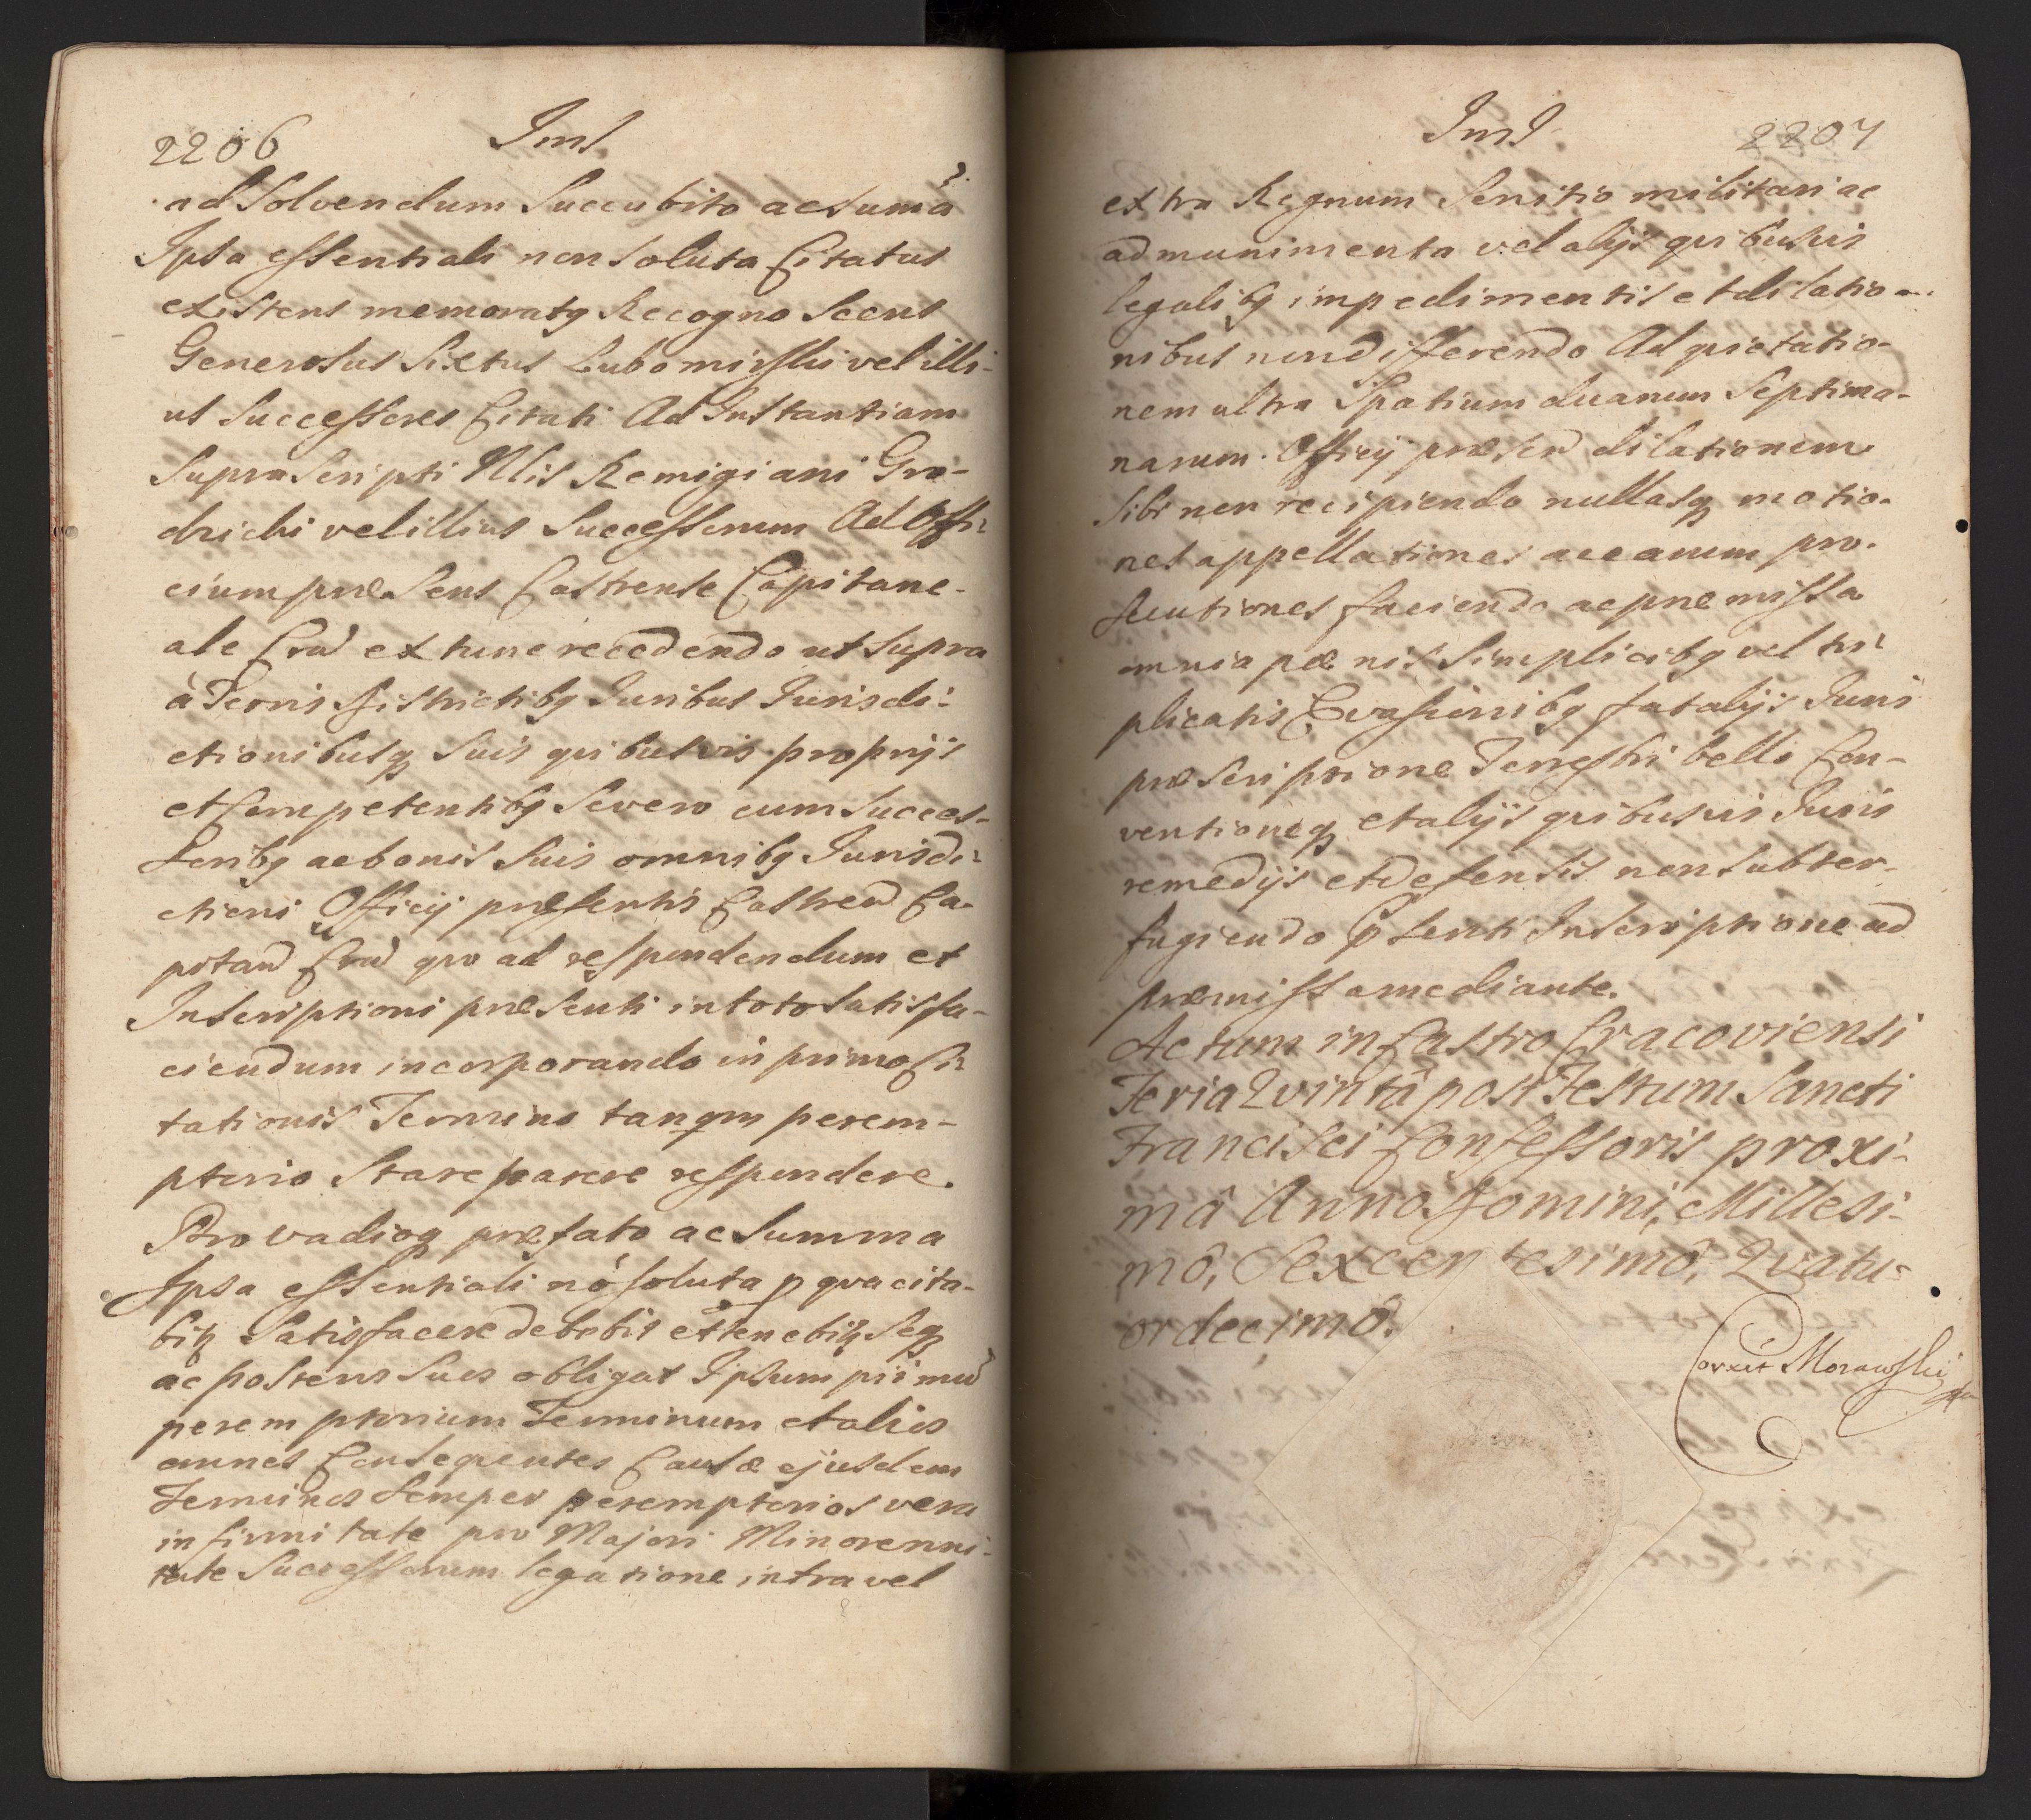 2206 Ims
ad Solvendum Succubito ac sumã
Ipsa essentiali non soluta Citatus
existens memoratq Recogno Scens
Generosus Sixtus Lubomirski vel illi-
us Successores Citati Ad Instantiam
Suprascripti Nlis Remigiani Gro-
dzicki vel illius Successorum Ad Offi-
cium præsens Castrense Capitane-
ale Crac̃ ex tunc recedendo ut supra
à Terris Districtibq Juribus Jurisdi-
ctionibusq suis quibusvis proprijs
et Competentibq Se vero cum Succes-
soribq ac bonis suis omnibq Jurisdi-
ctioni Officij præsentis Castren̄ Ca-
pitan̄ Crac̃ quo ad respondendum et
Inscriptioni præsenti in toto satisfa-
ciendum incorporando in primo Ci-
tationis Termino tanqm perem-
ptorio Stare parere respondere.
Pro vadioq præfato ac Summa
Ipsa essentiali nõ soluta p qua cita-
bitq Satisfacere debebit et tenebitq Seq
ac posteros suos obligat Ipsum primũ
peremptorium Terminum et alios
omnes Consequentes Causæ ejusdem
Terminos semper peremptorios vera
infirmitate pro Majori Minorenni-
tate Successorum legatione intra vel
Ims 2207
extra Regnum Servitio militari ac
ad munimenta vel alijs quibusvis
legalibq impedimentis et dilatio-
nibus non differendo Ad quietatio-
nem ultra Spatium duarum Septima-
narum. Officij præsen̄ dilationem
sibi non recipiendo nullasq motio-
nes appellationes ac earum pro-
secutiones faciendo ac præmissa
omnia pænis Simplicibq vel tri-
plicatis Evasionibq fatalijs Juris
præscriptione Terrestri bello Con-
ventioneq et alijs quibusvis Juris
remedijs et defensis non subter-
fugiendo psenti Inscriptione ad
præmissa mediante.
Actum in Castro Cracoviensi
Feria Quintâ post Festum Sancti
Francisci Confessoris proxi-
mâ Anno Domini, Millesi-
mô, Sexcentesimô, Quatu-
ordecimô.
Correxit Morawski